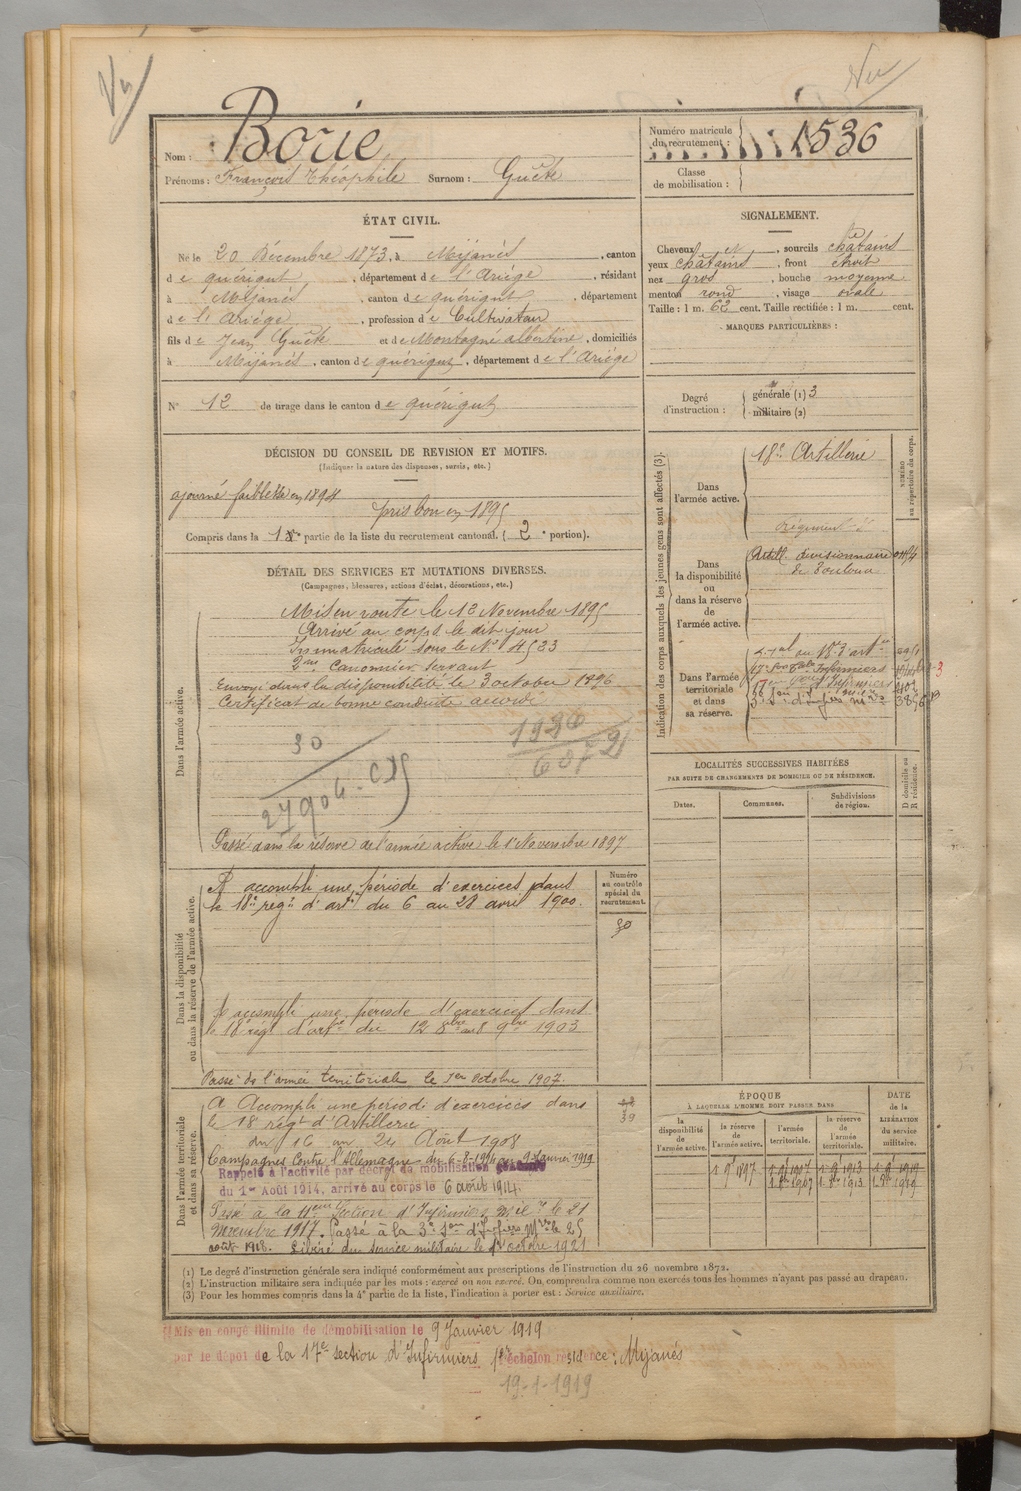 Vu
Vu
Nom : Borie
Prénoms : François Théophile Surnom : Guête
Numéro matricule
du recrutement : 1536
Classe
de mobilisation :
ÉTAT CIVIL.
Né le 20 Décembre 1873, à Mijanès, canton
de quérigut, département de l'Ariège, résidant
à Mijanès, canton de quérigut, département
de l'Ariège, profession de Cultivateur
fils de Jean Guête et de Montagne albertine, domiciliés
à Mijanès, canton de quérigut, département de l'Ariège
N° 12 de tirage dans le canton de quérigut
SIGNALEMENT.
Cheveux , sourcils châtains
yeux châtains, front étroit
nez gros, bouche moyenne
menton rond, visage ovale
Taille : 1 m. 62 cent. Taille rectifiée : 1 m. cent.
MARQUES PARTICULIÈRES :
Degré
d'instruction :
générale (1) 3
militaire (2)
DÉCISION DU CONSEIL DE REVISION ET MOTIFS.
(Indiquer la nature des dispenses, sursis, etc.)
ajourné faiblesse en 1894
pris bon en 1895
Compris dans la 1re partie de la liste du recrutement cantonal. (2e portion).
DÉTAIL DES SERVICES ET MUTATIONS DIVERSES.
(Campagnes, blessures, actions d'éclat, décorations, etc.)
Dans l'armée active.
Mis en route le 12 Novembre 1895
Arrivé au corps le dit jour
Immatriculé sous le N° 4523
2me Canonnier Servant
Envoyé dans la disponibilité le 3 october 1896
Certificat de bonne conduite accordé
30
1936
Passé dans la réserve de l'armée active le 1r Novembre 1897
Dans la disponibilité
ou dans la réserve de l'armée active.
A accompli une période d'exercices dans
le 18e régt d'artie du 6 au 28 avril 1900.
A accompli une période d'exercices dans
le 18e régt d'artie du 12 8bre au 8 9bre 1903
Passé de l'armée territoriale le 1er Octobre 1907.
Numéro
au contrôle
spécial du
recrutement.
30
39
Dans l'armée territoriale
et dans sa réserve.
A Accompli une période d'exercices dans
le 18 régt d'Artillerie
du 16 au 24 Août 1908
Campagnes Contre l'Allemagne du 6-8-1914 au 9 Janvier 1919
Rappelé à l'activité par décret de mobilisation générale
du 1er Août 1914, arrivé au corps le 6 août 1914.
Passé à la 11eme Section d'Infirmiers Milres le 21
Novembre 1917. Passé à la 3e Son d'Infirs Mres le 25
août 1918. Libéré du service militaire le 1er octobre 1921
Indication des corps auxquels les jeunes gens sont affectés (3).
Dans
l'armée active.
18e Artillerie
NUMÉRO
au répertoire du corps.
Dans
la disponibilité
ou
dans la réserve
de
l'armée active.
Régiment d'
Artill. divisionnaire
de Toulouse
Dans l'armée
territoriale
et dans
sa réserve.
LOCALITÉS SUCCESSIVES HABITÉES
PAR SUITE DE CHANGEMENTS DE DOMICILE OU DE RÉSIDENCE.
Dates.
Communes.
Subdivisions
de région.
D domicile ou
R résidence.
ÉPOQUE
À LAQUELLE L'HOMME DOIT PASSER DANS
la
disponibilité
de
l'armée active.
la réserve
de
l'armée active.
l'armée
territoriale.
la réserve
de
l'armée
territoriale.
DATE
de la
LIBÉRATION
du service
militaire.
1 9e 1897 1 9e 1907 1 9e 1913 1 9e 1919
(1) Le degré d'instruction générale sera indiqué conformément aux prescriptions de l'instruction du 26 novembre 1872.
(2) L'instruction militaire sera indiquée par les mots : exercé ou non exercé. On comprendra comme non exercés tous les hommes n'ayant pas passé au drapeau.
(3) Pour les hommes compris dans la 4e partie de la liste, l'indication à porter est : Service auxiliaire.
Mis en congé illimité de démobilisation le 9 Janvier 1919
par le dépôt de la 17e section d'Infirmiers 1er échelon résidence : Mijanés
19-1-1919